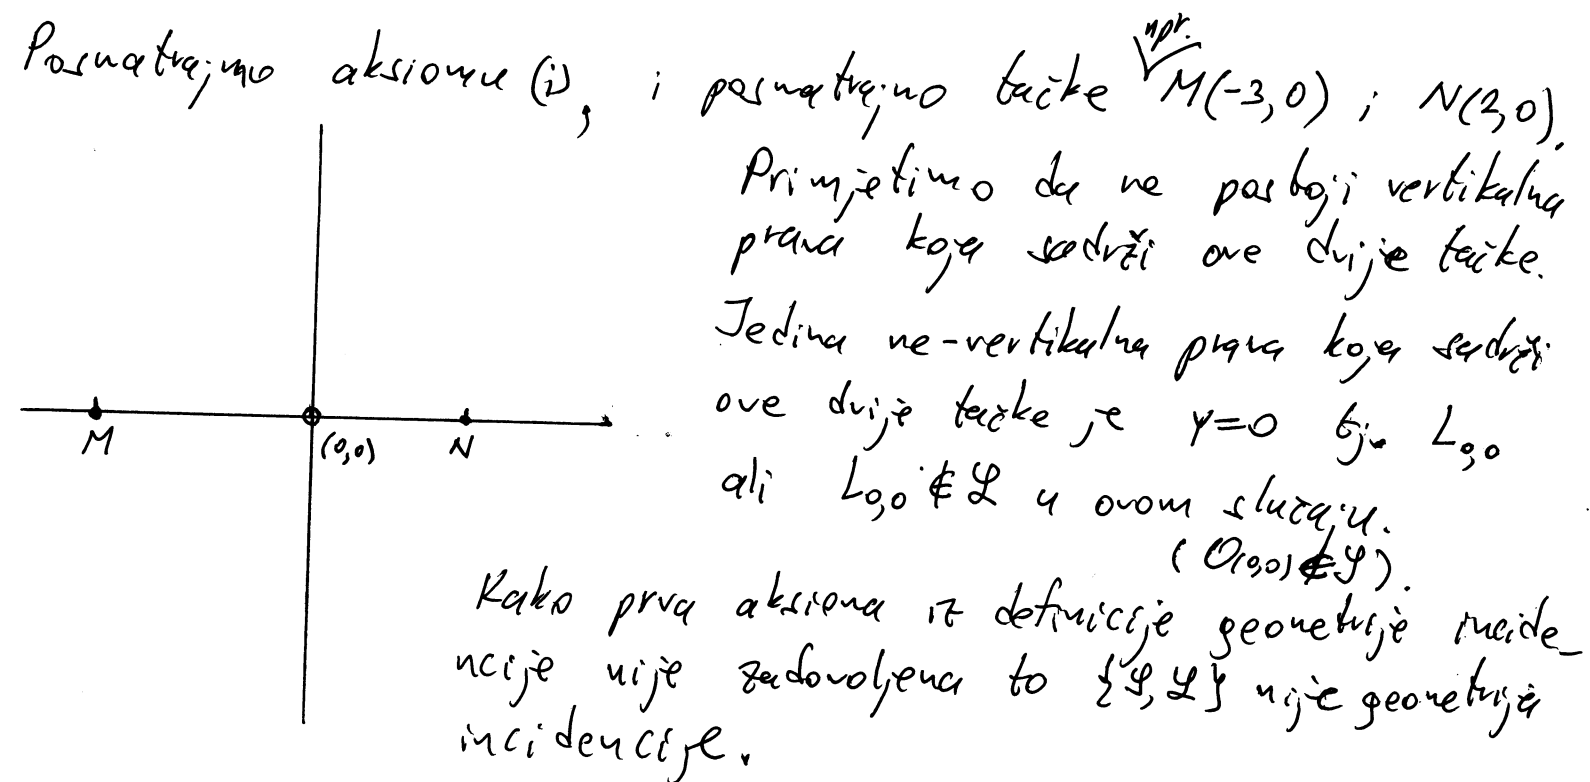 npr.
Posmatrajmo aksiomu (i), i posmatrajmo tačke M(-3,0) i N(2,0).
Primjetimo da ne postoji vertikalna
prava koja sadrži ove dvije tačke.
Jedina ne-vertikalna prava koja sadrži
ove dvije tačke je y=0 tj. L₀,₀
ali L₀,₀ ∉ ℒ u ovom slučaju.
(O(0,0) ∉ 𝒮).
M
(0,0)
N
Kako prva aksioma iz definicije geometrije incide-
ncije nije zadovoljena to {𝒮, ℒ} nije geometrija
incidencije.